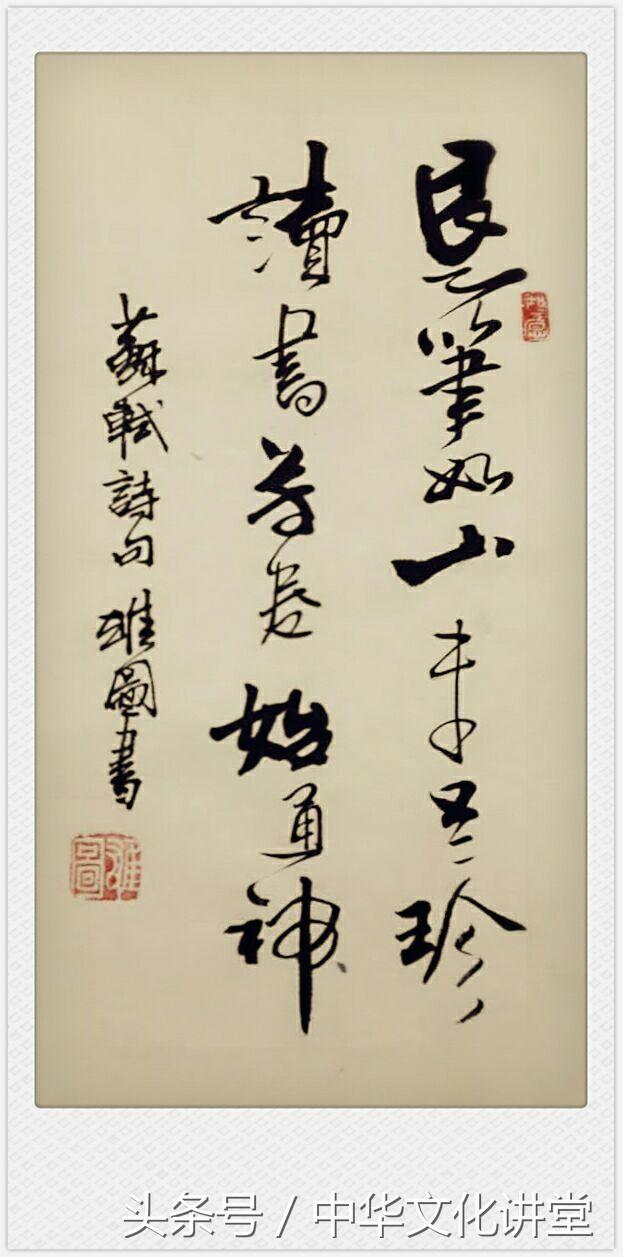 退筆如山未足珍
讀書萬卷始通神
蘇軾詩句 雄圖書
头条号 / 中华文化讲堂